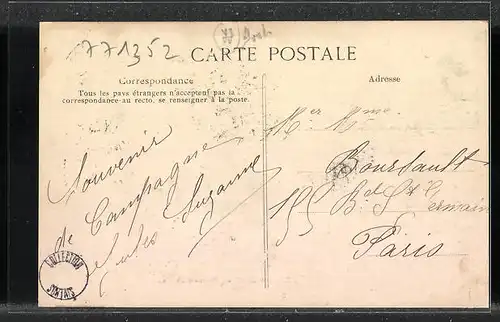 771352
CARTE POSTALE
Correspondance
Tous les pays étrangers n'acceptent pas la
correspondance au recto, se renseigner à la poste.
Adresse
Souvenir
de Campagne
Jules Suzanne
Mr et Mme
Boursault
155 Bd St Germain
Paris
COLLECTION